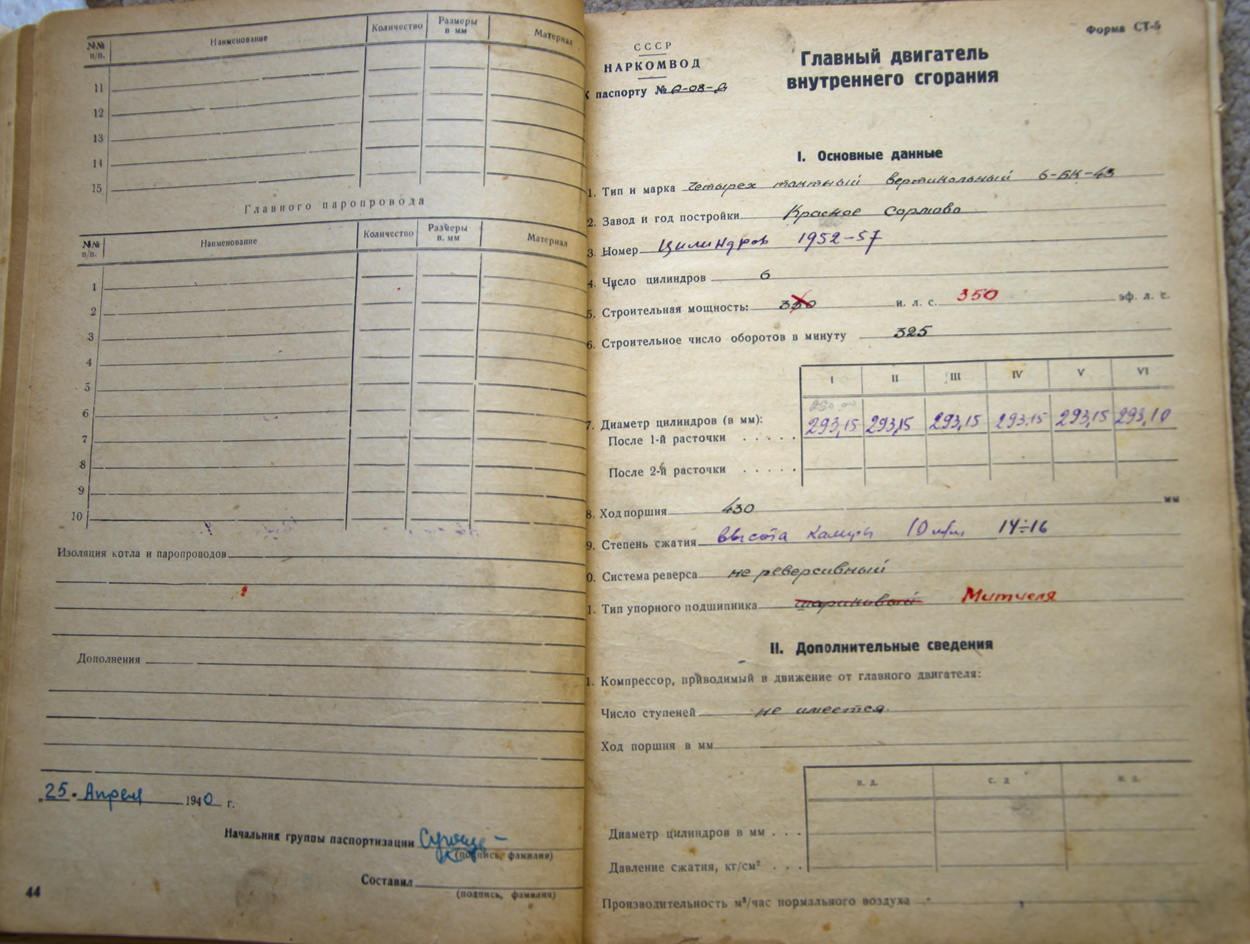 №№ п/п. Наименование Количество Размеры в мм Материал
11
12
13
14
15
Главного паропровода
№№ п/п. Наименование Количество Размеры в. мм Материал
1
2
3
4
5
6
7
8
9
10
Изоляция котла и паропроводов
Дополнения
„25 " Апреля 1940 г.
Начальник группы паспортизации
(подпись, фамилия)
Составил
(подпись, фамилия)
44
Форма СТ-5
СССР
НАРКОМВОД
К паспорту №
Главный двигатель
внутреннего сгорания
I. Основные данные
1. Тип и марка Четырех тактный вертикальный 6-БК-43
2. Завод и год постройки Красное Сормово
3. Номер Цилиндров 1952-57
4. Число цилиндров 6
5. Строительная мощность: и. л. с. 350 эф. л. с.
6. Строительное число оборотов в минуту 325
I II III IV V VI
7. Диаметр цилиндров (в мм): 293,15 293,15 293,15 293,15 293,15 293,10
После 1-й расточки . . . . .
После 2-й расточки . . . . .
8. Ход поршня 430 мм
9. Степень сжатия Высота камеры 10 мм 14÷16
0. Система реверса не реверсивный
1. Тип упорного подшипника шариковый Митчеля
II. Дополнительные сведения
1. Компрессор, приводимый в движение от главного двигателя:
Число ступеней не имеется.
Ход поршня в мм
в. д. с. д. н. д.
Диаметр цилиндров в мм . . .
Давление сжатия, кг/см² . . .
Производительность м³/час нормального воздуха